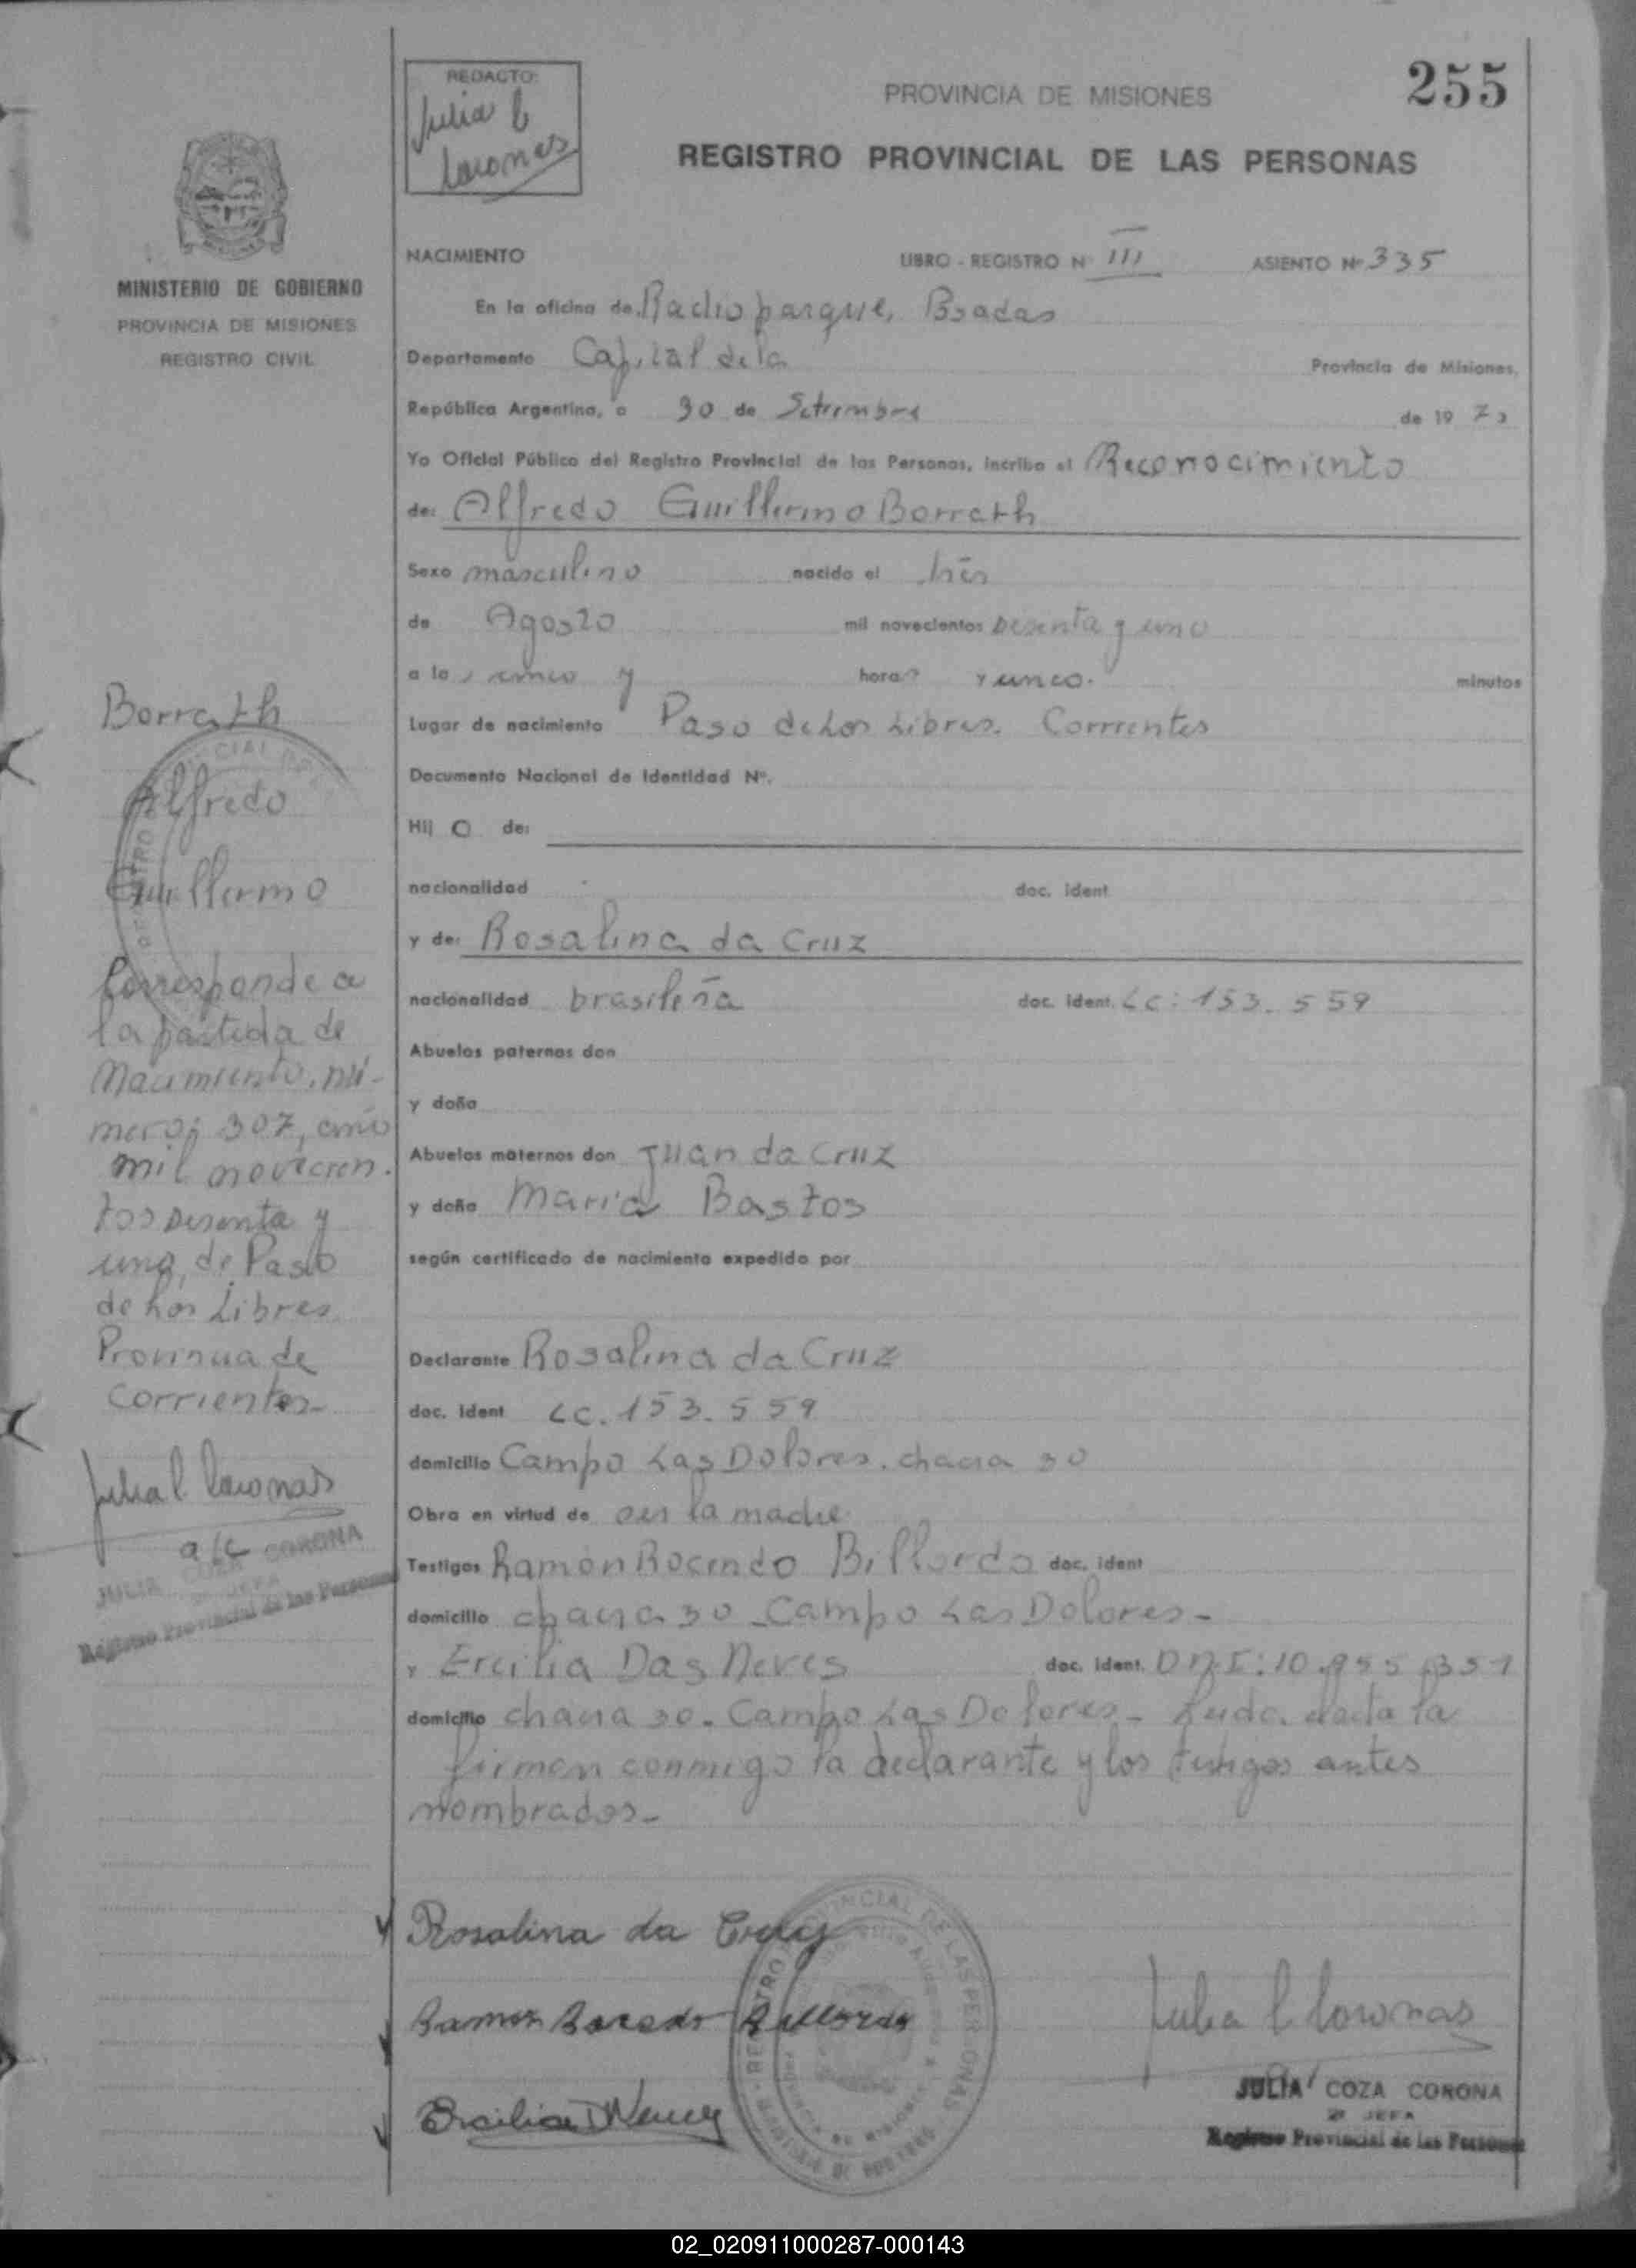 255
REDACTO:
Julia C
Coronas
PROVINCIA DE MISIONES
REGISTRO PROVINCIAL DE LAS PERSONAS
MINISTERIO DE GOBIERNO
PROVINCIA DE MISIONES
REGISTRO CIVIL
NACIMIENTO LIBRO - REGISTRO Nº III ASIENTO Nº 335
En la oficina de Radio parque, Posadas
Departamento Capital de la Provincia de Misiones,
República Argentina, a 30 de Setiembre de 19 73
Yo Oficial Público del Registro Provincial de las Personas, incribo el Reconocimiento
de: Alfredo Guillermo Borrath
Sexo masculino nacido el trés
de Agosto mil novecientos sesenta y uno
a las cinco y horas y cinco. minutos
Lugar de nacimiento Paso de Los Libres. Corrientes
Documento Nacional de Identidad Nº.
Hij o de:
nacionalidad doc. ident
y de: Rosalina da Cruz
nacionalidad brasileña doc. ident. LC: 153.559
Abuelos paternos don
y doña
Abuelos maternos don Juan da Cruz
y doña Maria Bastos
según certificado de nacimiento expedido por
Declarante Rosalina da Cruz
doc. ident LC. 153.559
domicilio Campo Las Dolores. chacra 30
Obra en virtud de ser la madre
Testigos Ramón Rocendo Billordo doc. ident
domicilio chacra 30 - Campo Las Dolores -
y Ercilia Das Neves doc. ident. DNI: 10.955.351
domicilio chacra 30. Campo Las Dolores - Leida el acta la
firman conmigo la declarante y los testigos antes
nombrados -
Borrath
Alfredo
Guillermo
Corresponde a
la partida de
Nacimiento, nú-
mero; 307, año
mil novecien.
tos sesenta y
uno, de Paso
de Los Libres
Provincia de
Corrientes -
Julia C Coronas
a/c
JULIA COZA CORONA
2ª JEFA
Registro Provincial de las Personas
Rosalina da Cruz
Ramon Rocendo Billordo
Ercilia D Neves
REGISTRO PROVINCIAL DE LAS PERSONAS
Julia C Coronas
JULIA COZA CORONA
2ª JEFA
Registro Provincial de las Personas
02_020911000287-000143